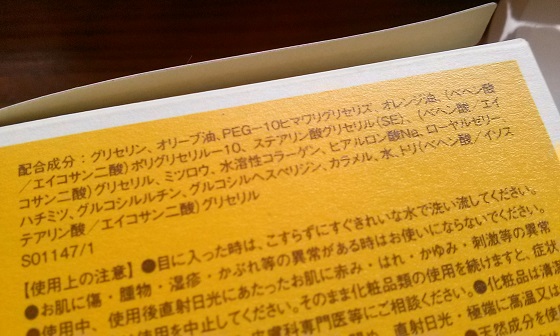 配合成分：グリセリン、オリーブ油、PEG－10ヒマワリグリセリズ、オレンジ油、（ベヘン酸
／エイコサン二酸）ポリグリセリル－10、ステアリン酸グリセリル（SE）、（ベヘン酸／エイ
コサン二酸）グリセリル、ミツロウ、水溶性コラーゲン、ヒアルロン酸Na、ローヤルゼリー、
ハチミツ、グルコシルルチン、グルコシルヘスペリジン、カラメル、水、トリ（ベヘン酸／イソス
テアリン酸／エイコサン二酸）グリセリル
S01147/1
【使用上の注意】●目に入った時は、こすらずにすぐきれいな水で洗い流してください。
●お肌に傷・腫物・湿疹・かぶれ等の異常がある時はお使いにならないでください。
●使用中、使用後直射日光にあたったお肌に赤み・はれ・かゆみ・刺激等の異常
は使用を中止してください。そのまま化粧品類の使用を続けますと、症状
皮膚科専門医等にご相談ください。●化粧品は清潔
直射日光・極端に高温又は
天然成分を